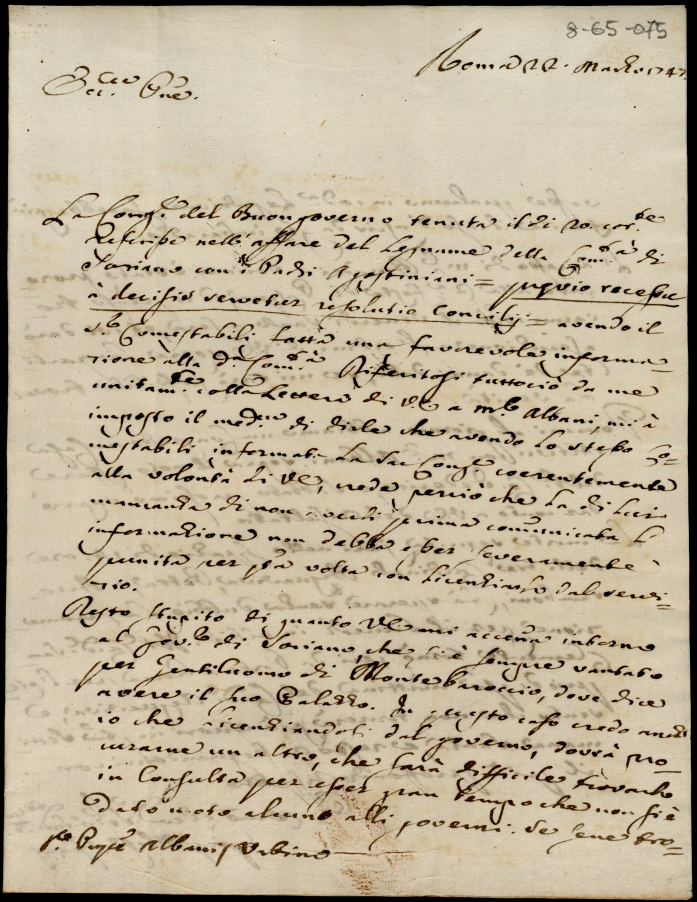 8-65-075
Roma 22. Marzo 1747.
Ecc.mo Pne.
La Cong.e del Buongoverno tenuta il di 20. cor.te
rescrisse nell'affare del Legname della Com.tà di
Soriano con i Padri Agostiniani = previo recessu
à decisis servetur resolutio Concilij = avendo il
Comestabili fatta una favorevole informa-
zione alla d.a Com.tà Riferitosi tuttociò da me
unitam.te colla Lettera di V.E. a Albani, mi à
imposto il med.mo di dirle che avendo lo stesso Co-
mestabili informata la Sac. Cong.e coerentemente
alla volontà di VE, crede perciò che la di lui
mancanza di non averli prima comunicata l'
informazione non debba esser severamente
punita per p.ma volta con licenziarlo dal servi-
zio.
Resto stupito di quanto VE mi accenna intorno
al Gov.re di Soriano, che si è sempre vantato
per Gentiluomo di Montebaroccio, dove dice
avere il suo Palazzo. In questo caso credo anch'
io che licenziandosi dal governo, dovrà pro-
curarne un altro, che sarà difficile trovarlo
in Consulta per esser gran tempo che non si è
dato moto alcuno alli governi. Se sene tro-
Albani Urbino